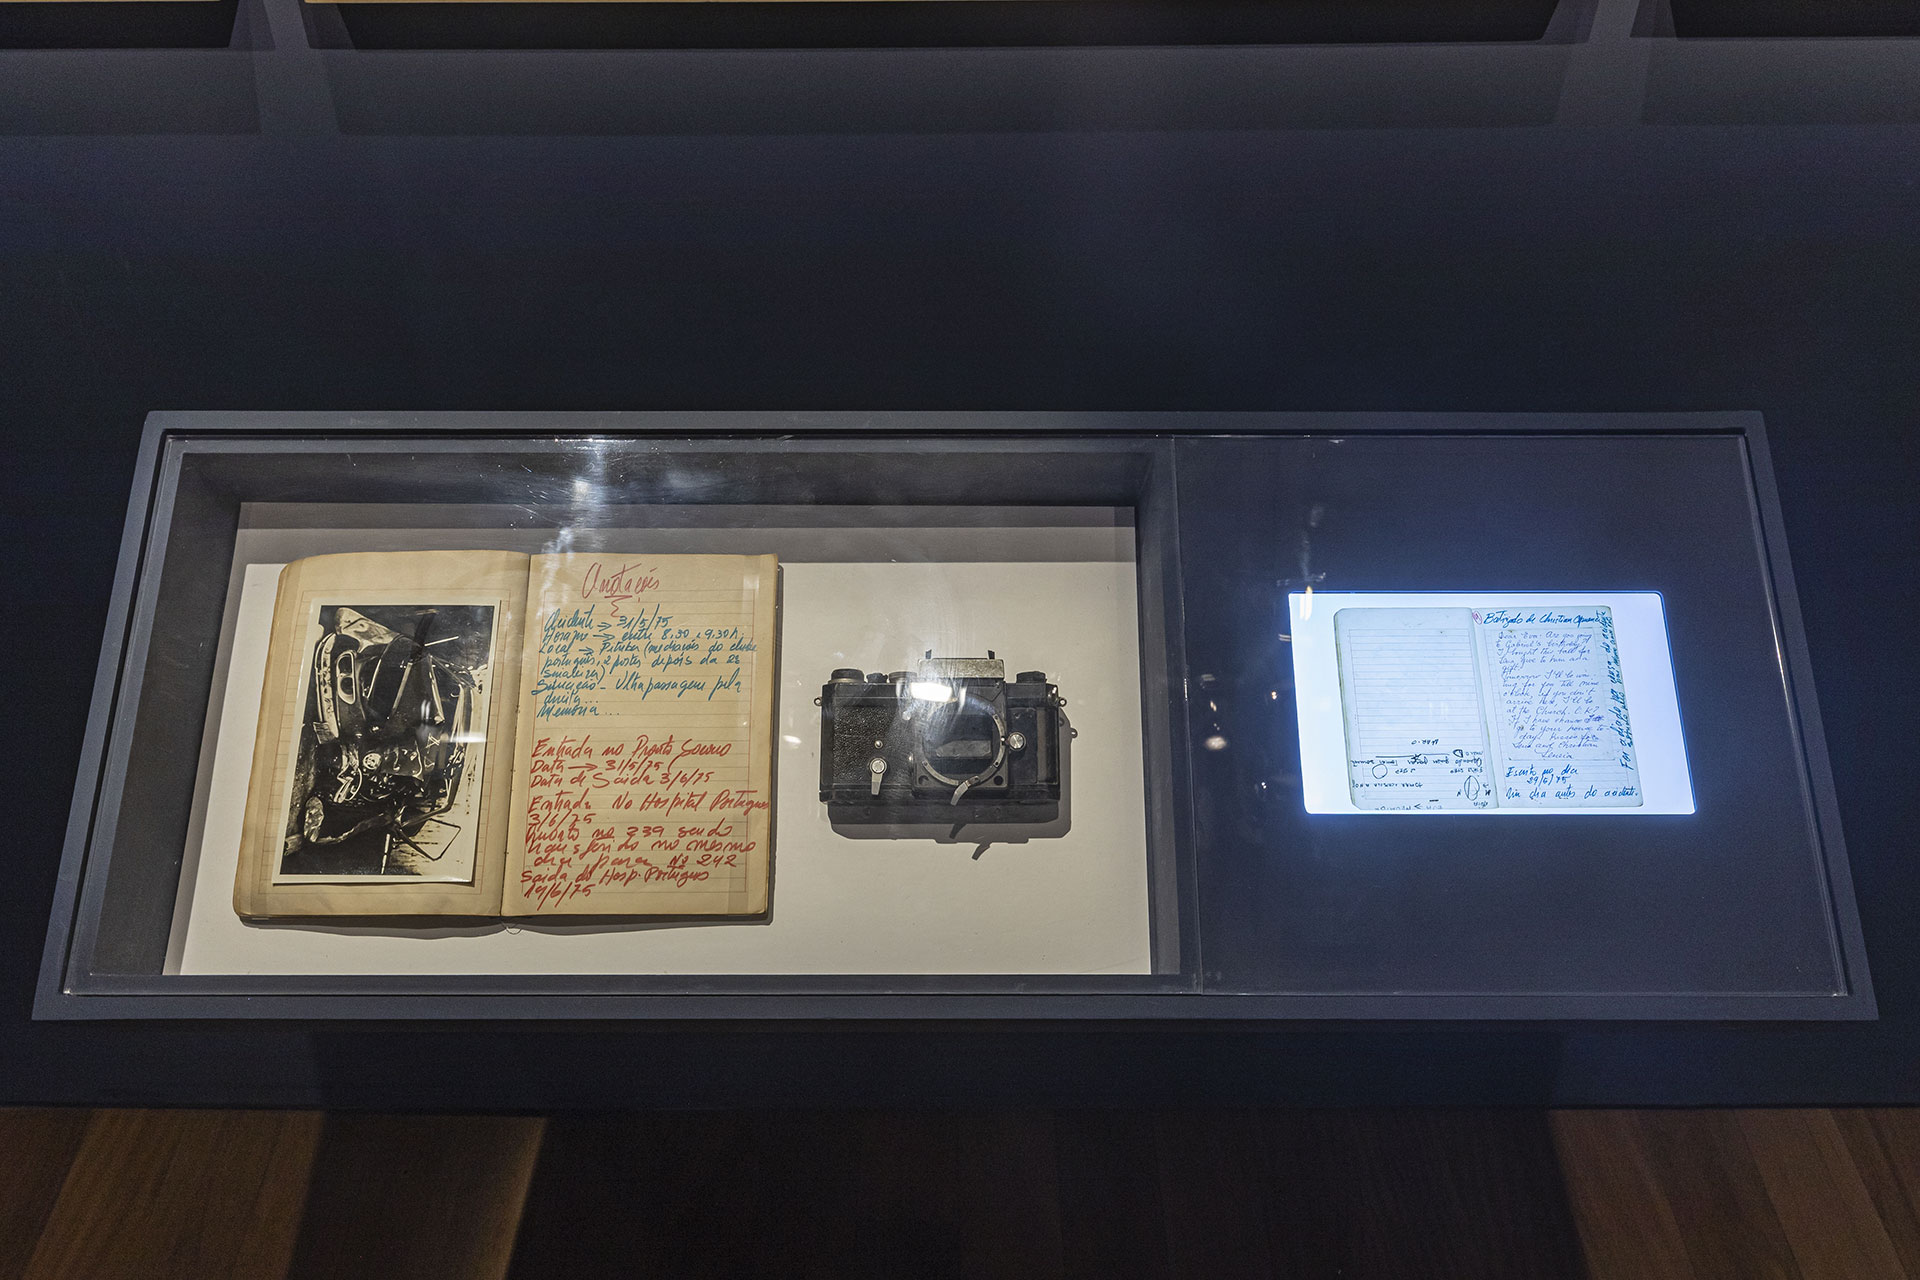 Anotações
Acidente → 31/5/75
Horário → entre 8,30 e 9,30h,
Local → Pituba (mediações do clube
português, 2 postes depois da 2ª
sinaleira)
Situação - Ultrapassagem pela
direita...
Memória...
Entrada no Pronto Socorro
Data → 31/5/75
Data de Saida 3/6/75
Entrada No Hospital Portugues
3/6/75
Quarto nº 239 sendo
transferido no mesmo
dia para Nº 242
Saida do Hosp. Portugues
19/6/75
Batizado de Christian
Dear Are you going
to Gabriel's birthday?
I bought this ball for
give to him as a
gift.
Tomorrow I'll be wai-
ting for you till nine
o'clock, if you don't
arrive here, I'll be
at the Church. O.K?
If I have chance I'll
go to your house to-
day. Kisses for
and Christian
Escrito no dia
29/5/75
Um dia antes do acidente.
Foi adiado por causa do acidente